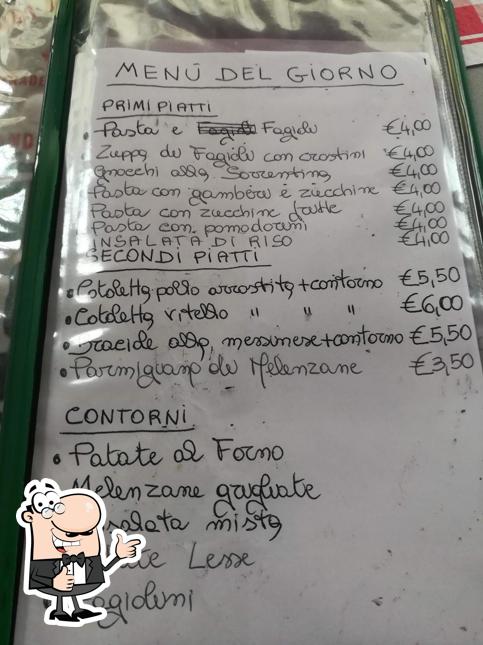 MENÙ DEL GIORNO
PRIMI PIATTI
Pasta e Fagioli €4,00
Zuppa di Fagioli con crostini €4,00
Gnocchi alla Sorrentina €4,00
Pasta con gamberi e zucchine €4,00
Pasta con zucchine fritte €4,00
Pasta con pomodorini €4,00
INSALATA DI RISO €4,00
SECONDI PIATTI
• Cotoletta pollo arrostita + contorno €5,50
• Cotoletta vitello " " " €6,00
• Braciole alla messinese + contorno €5,50
• Parmigiana di Melenzane €3,50
CONTORNI
• Patate al Forno
Melenzane grigliate
mista
Lesse